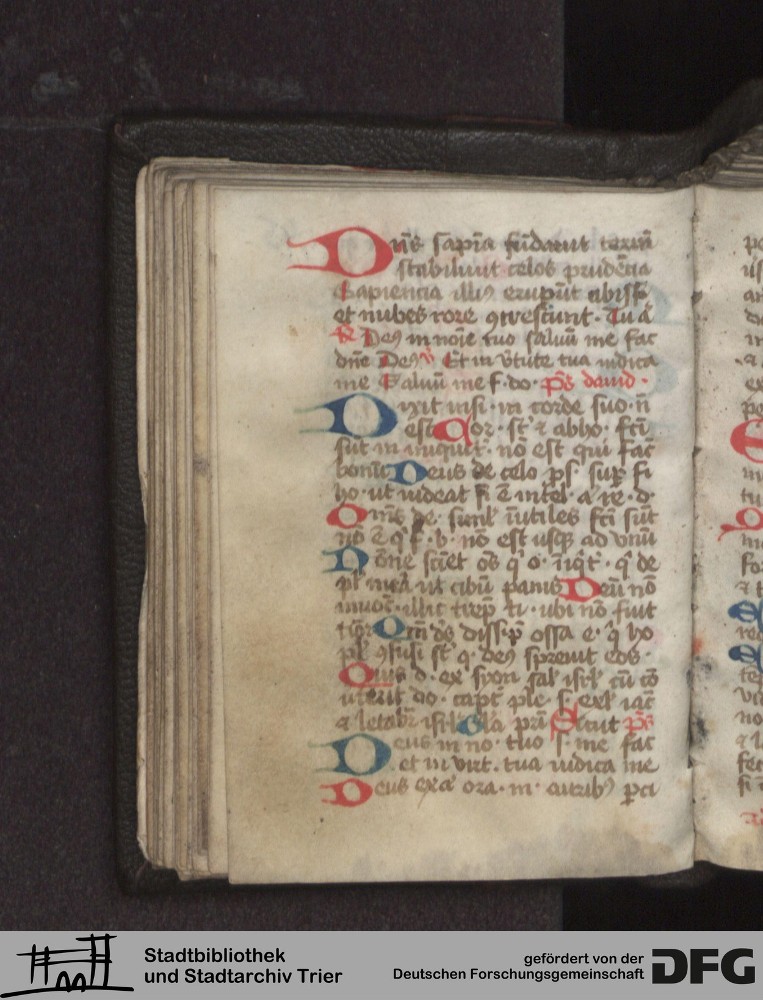 Dn̄s sapīa fūdauit terrā
stabiliuit celos prudēcia
Sapiencia illiꝰ erupūt abissi
et nubes rore ꝯcrescunt. Tu a
Deꝰ in noīe tuo saluū me fac
dn̄e Deꝰ Et in v̄tute tua iudica
me Saluū me f. do. p̄s dauid.
Dixit insi. in corde suo. n̄
est Cor. st̄ ⁊ abho. fc̄i
sūt in iniquit. nō est qui fac̄
bonū Deus de celo ps̄. suꝑ fi
ho. ut uideat si ē intel. a. re. d.
Omēs de. simul īutiles fc̄i sūt
nō ē q̄ f. b. nō est usqꝫ ad vnū
Nōne sciēt oēs q̄ o. iniq̄t. q̄ de
pl. meā ut cibū panis Deū nō
inuoc. illic trep. ti. ubi nō fuit
timor Qm̄ dō dissip̄ ossa e. q̄ ho
pl. ꝯfusi st̄ q. deꝰ spreuit eos.
Quis d. ex syon sal. isrl̄ cū cō
uerit do. capt. ple. s. exl. iac̄
⁊ letabr̄ isrl̄ Gla prī Sicut p̄s
Deus in no. tuo s. me fac
et in virt. tua iudica me
Deus exa ora. m. auribꝰ ꝑci
Stadtbibliothek
und Stadtarchiv Trier
gefördert von der
Deutschen Forschungsgemeinschaft
DFG